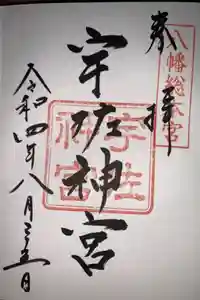 奉拝
八幡総本宮
宇佐神宮
宇佐神宮
令和四年八月三五日